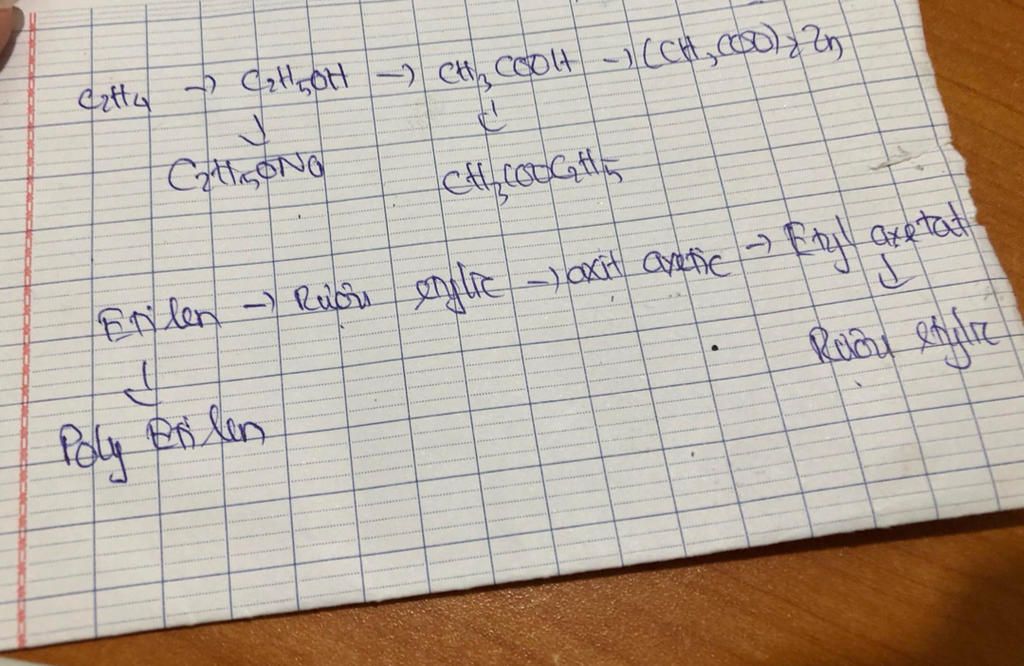 C₂H₄ → C₂H₅OH → CH₃COOH → (CH₃COO)₂Zn
↓ ↓
C₂H₅ONa CH₃COOC₂H₅
Etilen → Rượu etylic → axit axetic → Etyl axetat
↓ ↓
Rượu etylic
Poly Etilen